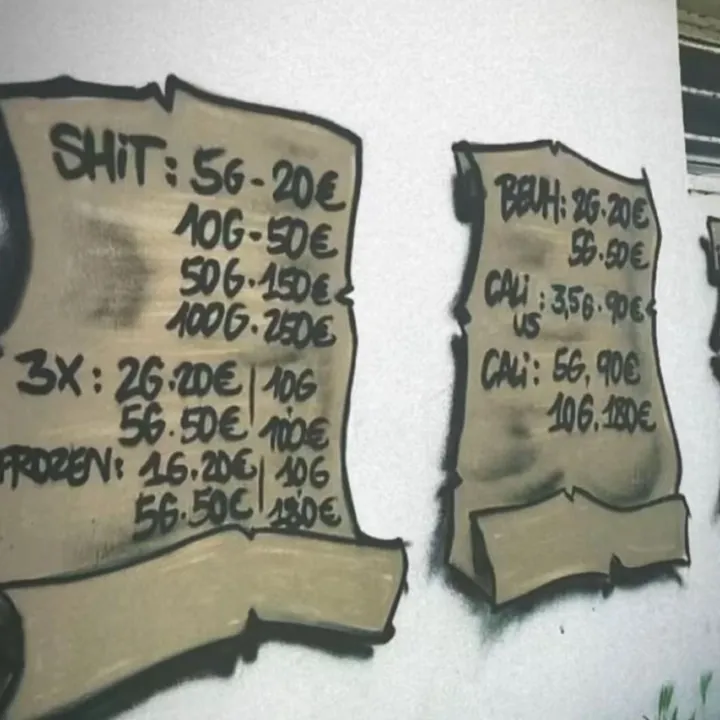 SHiT: 5G-20€
10G-50€
50G.150€
100G.250€
3X: 2G.20€ | 10G
5G.50€ | 100€
FROZEN: 1G.20€ | 10G
5G.50€ | 130€
BEUH: 2G.20€
5G.50€
CALi US : 3,5G.90€
CALi: 5G, 90€
10G, 180€